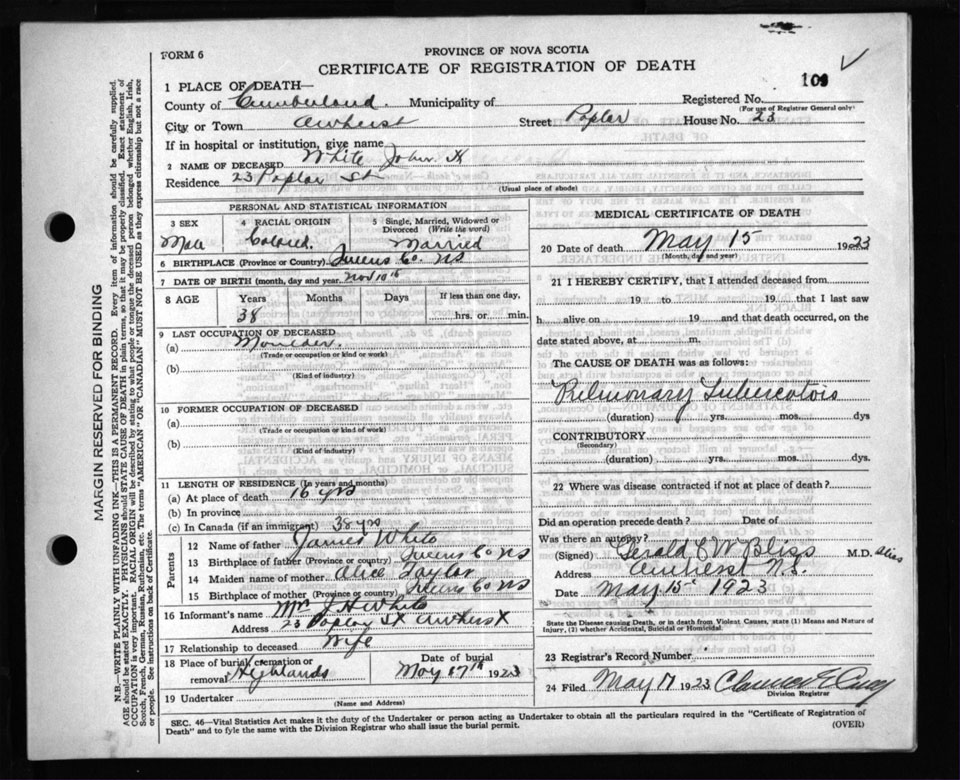 FORM 6
PROVINCE OF NOVA SCOTIA
CERTIFICATE OF REGISTRATION OF DEATH
109
1 PLACE OF DEATH—
County of Cumberland. Municipality of Registered No.
(For use of Registrar General only)
City or Town Amherst Street Poplar House No. 23
If in hospital or institution, give name
2 NAME OF DECEASED White John H
Residence 23 Poplar St
(Usual place of abode)
PERSONAL AND STATISTICAL INFORMATION
3 SEX 4 RACIAL ORIGIN 5 Single, Married, Widowed or Divorced (Write the word)
Male Colored. Married
6 BIRTHPLACE (Province or Country) Queens Co. NS
7 DATE OF BIRTH (month, day and year) Nov 10th
8 AGE Years Months Days If less than one day,
38 hrs. or min.
9 LAST OCCUPATION OF DECEASED
(a) Moulder.
(Trade or occupation or kind or work)
(b)
(Kind of industry)
10 FORMER OCCUPATION OF DECEASED
(a)
(Trade or occupation or kind of work)
(b)
(Kind of industry)
11 LENGTH OF RESIDENCE (In years and months)
(a) At place of death 16 yrs
(b) In province
(c) In Canada (if an immigrant) 38 yrs
Parents
12 Name of father James White
13 Birthplace of father (Province or country) Queens Co NS
14 Maiden name of mother Alice Taylor
15 Birthplace of mother (Province or country) Queens Co NS
16 Informant's name Mrs J H White
Address 23 Poplar St Amherst
17 Relationship to deceased Wife
18 Place of burial, cremation or removal Highlands Date of burial May 17th 1923
19 Undertaker
(Name and Address)
MEDICAL CERTIFICATE OF DEATH
20 Date of death May 15 1923
(Month, day and year)
21 I HEREBY CERTIFY, that I attended deceased from
19 to 19 , that I last saw
h alive on 19 and that death occurred, on
date stated above, at m.
The CAUSE OF DEATH was as follows:
Pulmonary Tuberculosis
(duration) yrs. mos. dys
CONTRIBUTORY
(Secondary)
(duration) yrs. mos. dys
22 Where was disease contracted if not at place of death?
Did an operation precede death? Date of
Was there an autopsy?
(Signed) Gerald C W Bliss M.D. Bliss
Address Amherst N.S.
Date May 15th 1923
State the Disease causing Death, or in death from Violent Causes, state (1) Means and Nature of
Injury, (2) whether Accidental, Suicidal or Homicidal.
23 Registrar's Record Number
24 Filed May 17 1923
Division Registrar
SEC. 46—Vital Statistics Act makes it the duty of the Undertaker or person acting as Undertaker to obtain all the particulars required in the "Certificate of Registration of
Death" and to fyle the same with the Division Registrar who shall issue the burial permit. (OVER)
MARGIN RESERVED FOR BINDING
N.B.—WRITE PLAINLY WITH UNFADING INK—THIS IS A PERMANENT RECORD. Every item of information should be carefully supplied.
AGE should be stated EXACTLY. PHYSICIANS should STATE CAUSE OF DEATH in plain terms, so that it may be properly classified. Exact statement of
OCCUPATION is very important. RACIAL ORIGIN will be described by stating to what people or tongue the deceased person belonged whether English, Irish,
Scotch, French, German, Russian, Ruthenian, etc. The terms "AMERICAN" or "CANADIAN" MUST NOT BE USED as they express citizenship but not a race
or people. See instructions on back of Certificate.